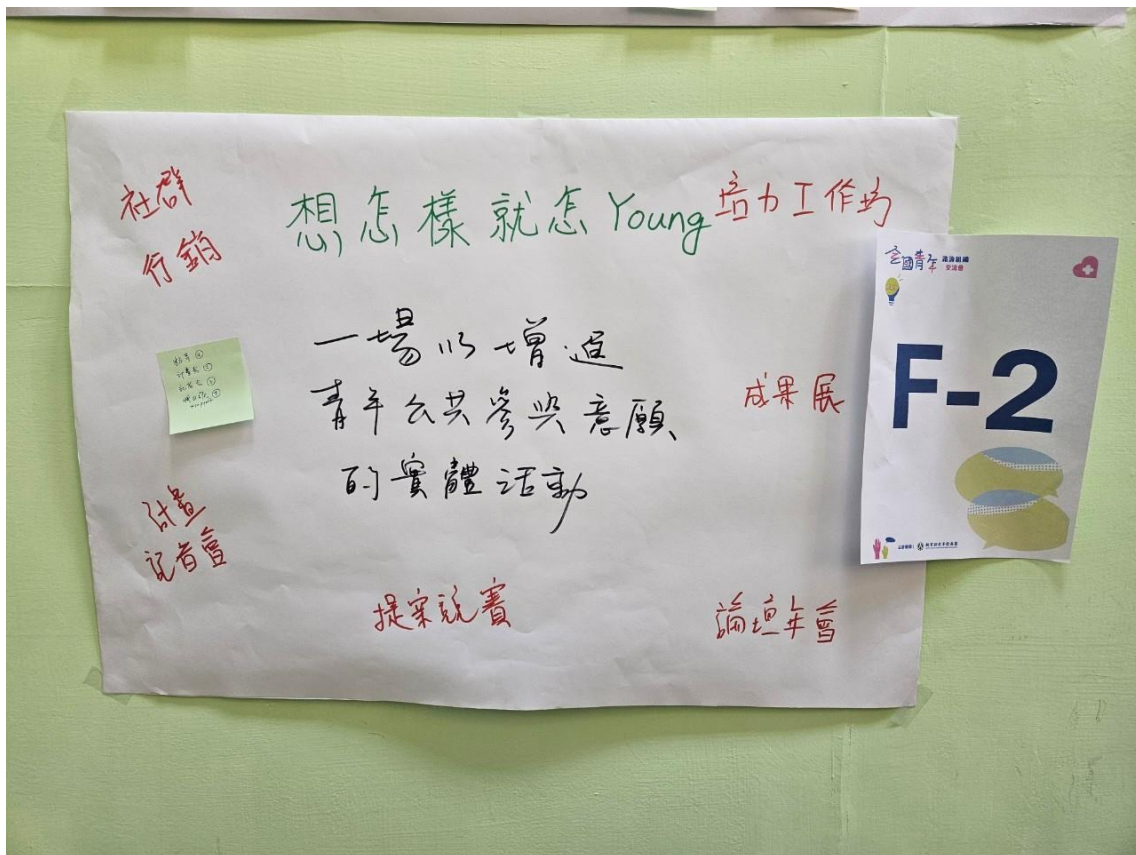 社群
行銷
想怎樣就怎Young
培力工作坊
一場以增進
青年公共參與意願
的實體活動
成果展
計畫
記者會
提案競賽
論壇年會
全國青年
交流會
F-2